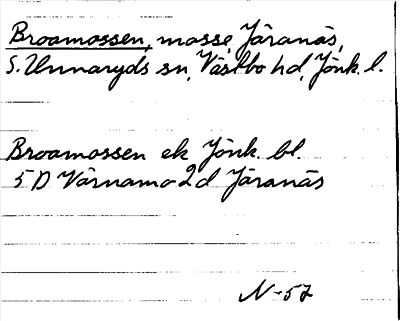 Broamossen, mosse, Järanäs,
S. Unnaryds sn, Västbo hd, Jönk. l.
Broamossen ek Jönk. bl.
5 D Värnamo 2d Järanäs
N-57